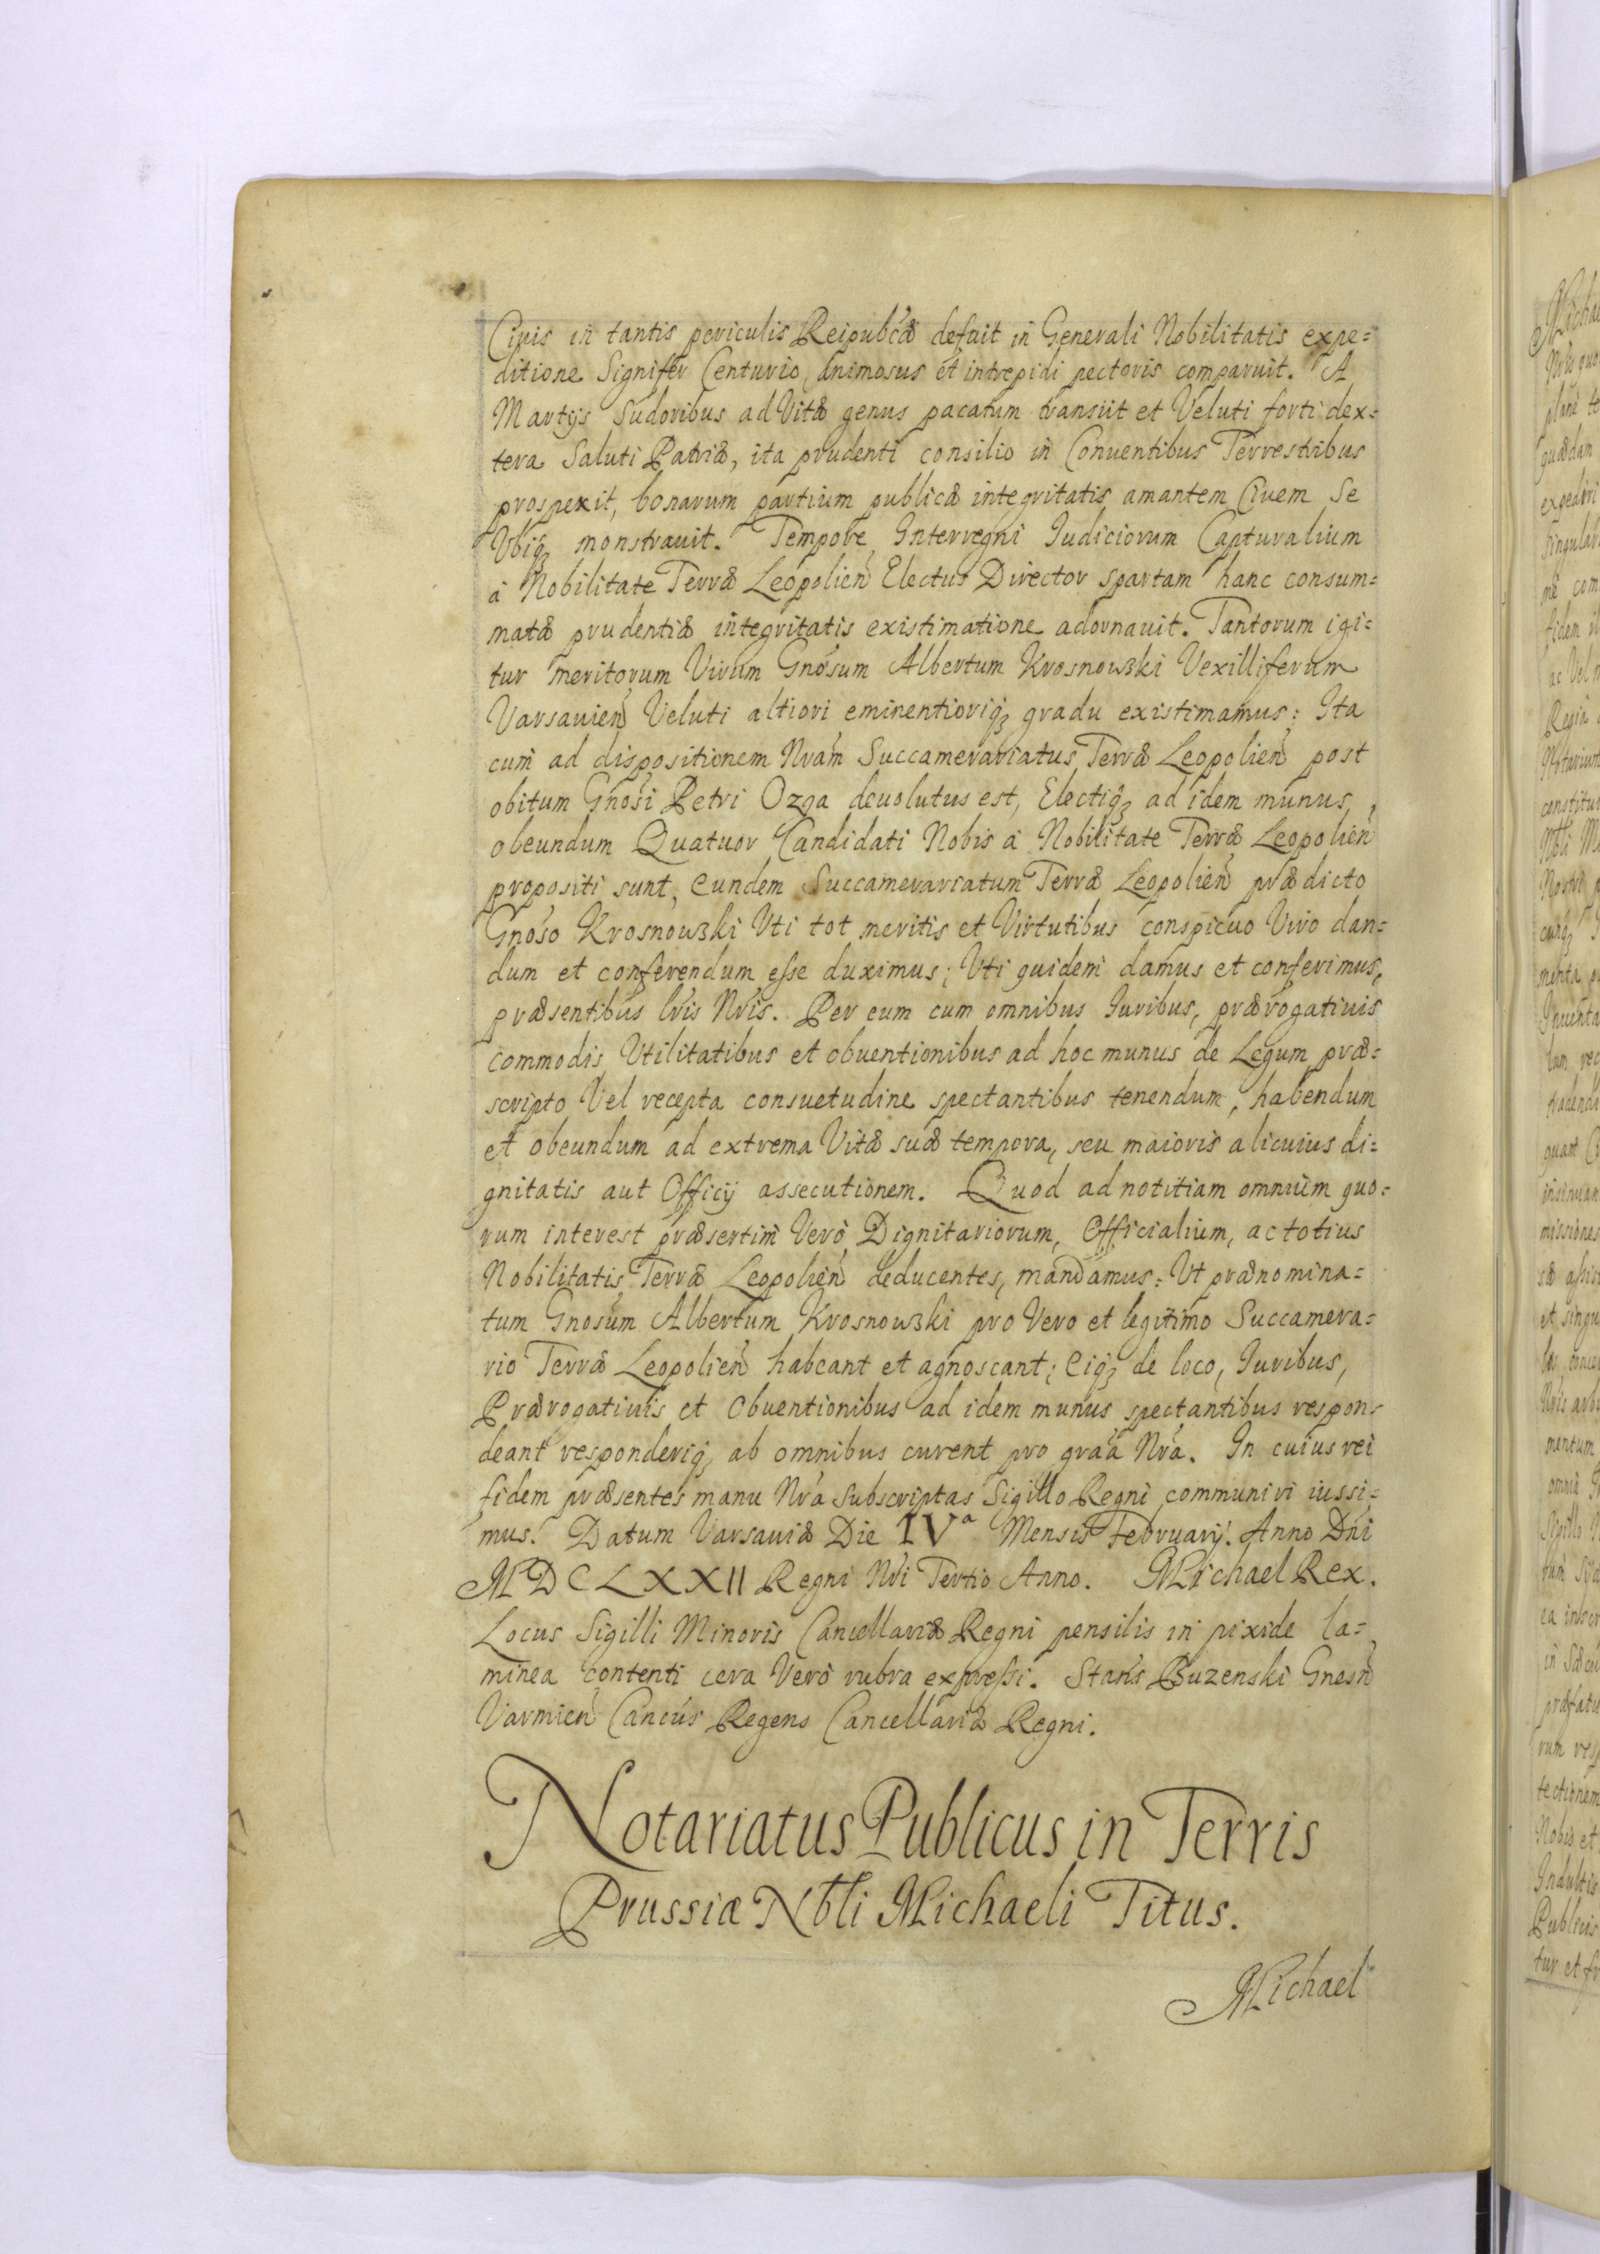 Civis in tantis periculis Reipubcæ defuit in Generali Nobilitatis expe=
ditione Signifer Centurio, animosus et intrepidi pectoris comparuit. A
Martijs Sudoribus ad Vitæ genus pacatum transiit et Veluti forti dex=
tera Saluti Patriæ, ita prudenti consilio in Conuentibus Terrestribus
prospexit, bonarum partium publicæ integritatis amantem Ciuem Se
Vbiq3 monstrauit. Tempore Interregni Iudiciorum Capturalium
à Nobilitate Terræ Leopolien Electus Director spartam hanc consum=
matæ prudentiæ integritatis existimatione adornauit. Tantorum igi=
tur meritorum Virum Gnosum Albertum Krosnowski Vexilliferum
Varsauien Veluti altiori eminentioriq3 gradu existimamus: Ita
cum ad dispositionem Nram Succamerariatus Terræ Leopolien post
obitum Gnosi Petri Ozga deuolutus est, Electiq3 ad idem munus,
obeundum Quatuor Candidati Nobis à Nobilitate Terræ Leopolien
propositi sunt, eundem Succamerariatum Terræ Leopolien prædicto
Gnoso Krosnowski Vti tot meritis et Virtutibus conspicuo Viro dan=
dum et conferendum esse duximus; Vti quidem damus et conferimus,
præsentibus lris Nris. Per eum cum omnibus Iuribus, prærogatiuis
commodis Vtilitatibus et obuentionibus ad hoc munus de Legum præ=
scripto Vel recepta consuetudine spectantibus tenendum, habendum
et obeundum ad extrema Vitæ suæ tempora, seu maioris alicuius di=
gnitatis aut Officij assecutionem. Quod ad notitiam omnium quo=
rum interest præsertim Verò Dignitariorum, Officialium, ac totius
Nobilitatis Terræ Leopolien deducentes, mandamus: Vt prænomina=
tum Gnosum Albertum Krosnowski pro Vero et legitimo Succamera=
rio Terræ Leopolien habeant et agnoscant; Eiq3 de loco, Iuribus,
Prærogatiuis et Obuentionibus ad idem munus spectantibus respon=
deant responderiq3 ab omnibus curent pro graa Nra. In cuius rei
fidem præsentes manu Nra Subscriptas Sigillo Regni communiri iussi=
mus. Datum Varsauiæ Die IVa Mensis Februarij. Anno Dni
MDCLXXII Regni Nri Tertio Anno. Michael Rex.
Locus Sigilli Minoris Cancellariæ Regni pensilis in pixide la=
minea contenti cera Verò rubra expressi. Stans Buzenski Gnesn
Varmien Cancus Regens Cancellariæ Regni.
Notariatus Publicus in Terris
Prussiæ Nbli Michaeli Titus.
Michael